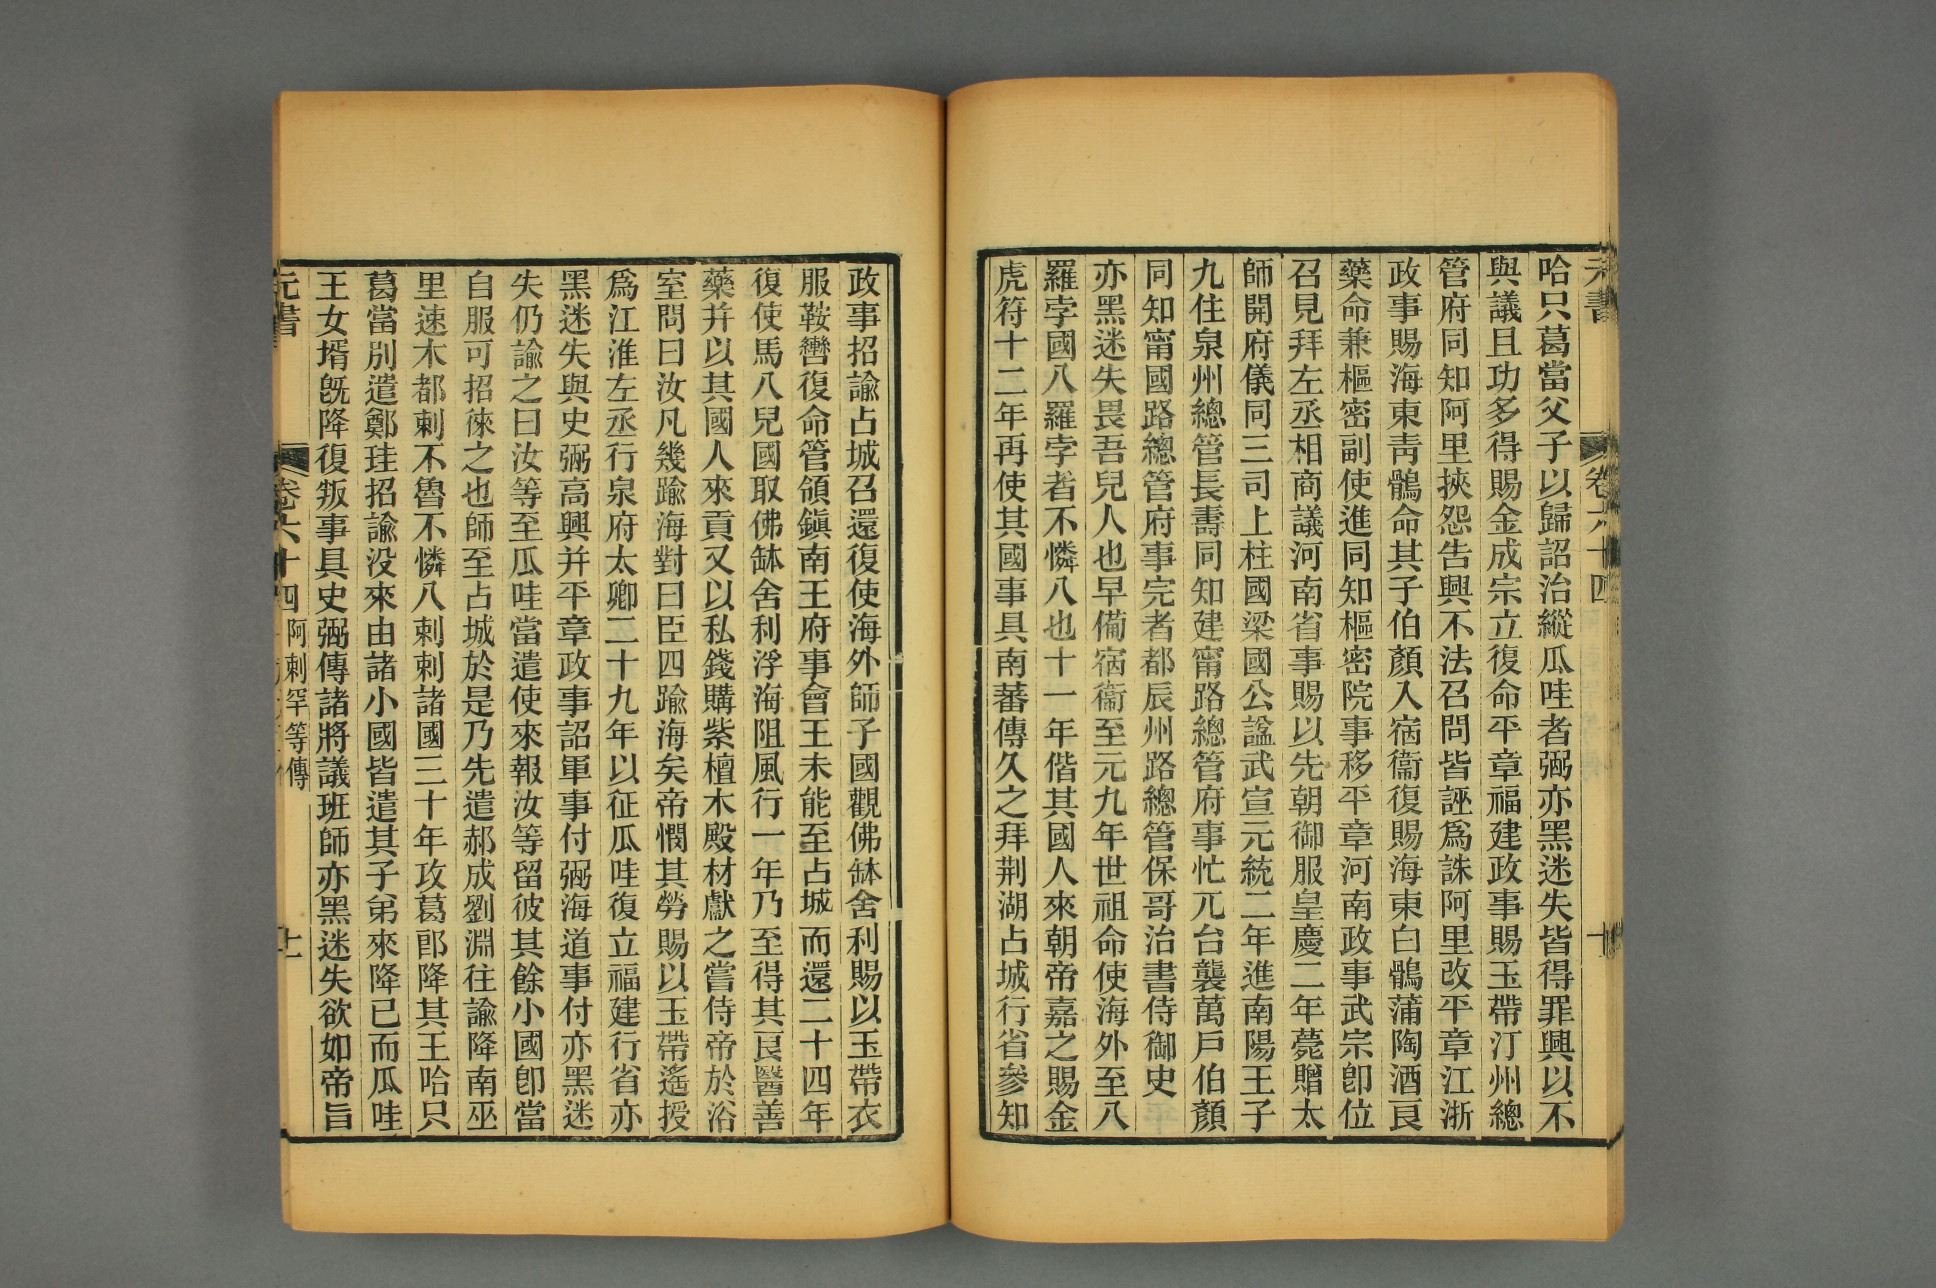 元書
卷六十四
十
哈只葛當父子以歸詔治縱瓜哇者弼亦黑迷失皆得罪興以不
與議且功多得賜金成宗立復命平章福建政事賜玉帶汀州總
管府同知阿里挾怨告興不法召問皆誣爲誅阿里改平章江浙
政事賜海東青鶻命其子伯顏入宿衞復賜海東白鶻蒲陶酒良
藥命兼樞密副使進同知樞密院事移平章河南政事武宗卽位
召見拜左丞相商議河南省事賜以先朝御服皇慶二年薨贈太
師開府儀同三司上柱國梁國公諡武宣元統二年進南陽王子
九住泉州總管長壽同知建甯路總管府事忙兀台襲萬戶伯顏
同知甯國路總管府事完者都辰州路總管保哥治書侍御史
亦黑迷失畏吾兒人也早備宿衞至元九年世祖命使海外至八
羅孛國八羅孛者不憐八也十一年偕其國人來朝帝嘉之賜金
虎符十二年再使其國事具南蕃傳久之拜荆湖占城行省參知
政事招諭占城召還復使海外師子國觀佛缽舍利賜以玉帶衣
服鞍轡復命管領鎭南王府事會王未能至占城而還二十四年
復使馬八兒國取佛缽舍利浮海阻風行一年乃至得其良醫善
藥幷以其國人來貢又以私錢購紫檀木殿材獻之嘗侍帝於浴
室問曰汝凡幾踰海對曰臣四踰海矣帝憫其勞賜以玉帶遙授
爲江淮左丞行泉府太卿二十九年以征瓜哇復立福建行省亦
黑迷失與史弼高興幷平章政事詔軍事付弼海道事付亦黑迷
失仍諭之曰汝等至瓜哇當遣使來報汝等留彼其餘小國卽當
自服可招徠之也師至占城於是乃先遣郝成劉淵往諭降南巫
里速木都剌不魯不憐八剌剌諸國三十年攻葛郎降其王哈只
葛當別遣鄭珪招諭没來由諸小國皆遣其子弟來降已而瓜哇
王女壻旣降復叛事具史弼傳諸將議班師亦黑迷失欲如帝旨
元書
卷六十四
阿剌罕等傳
十一